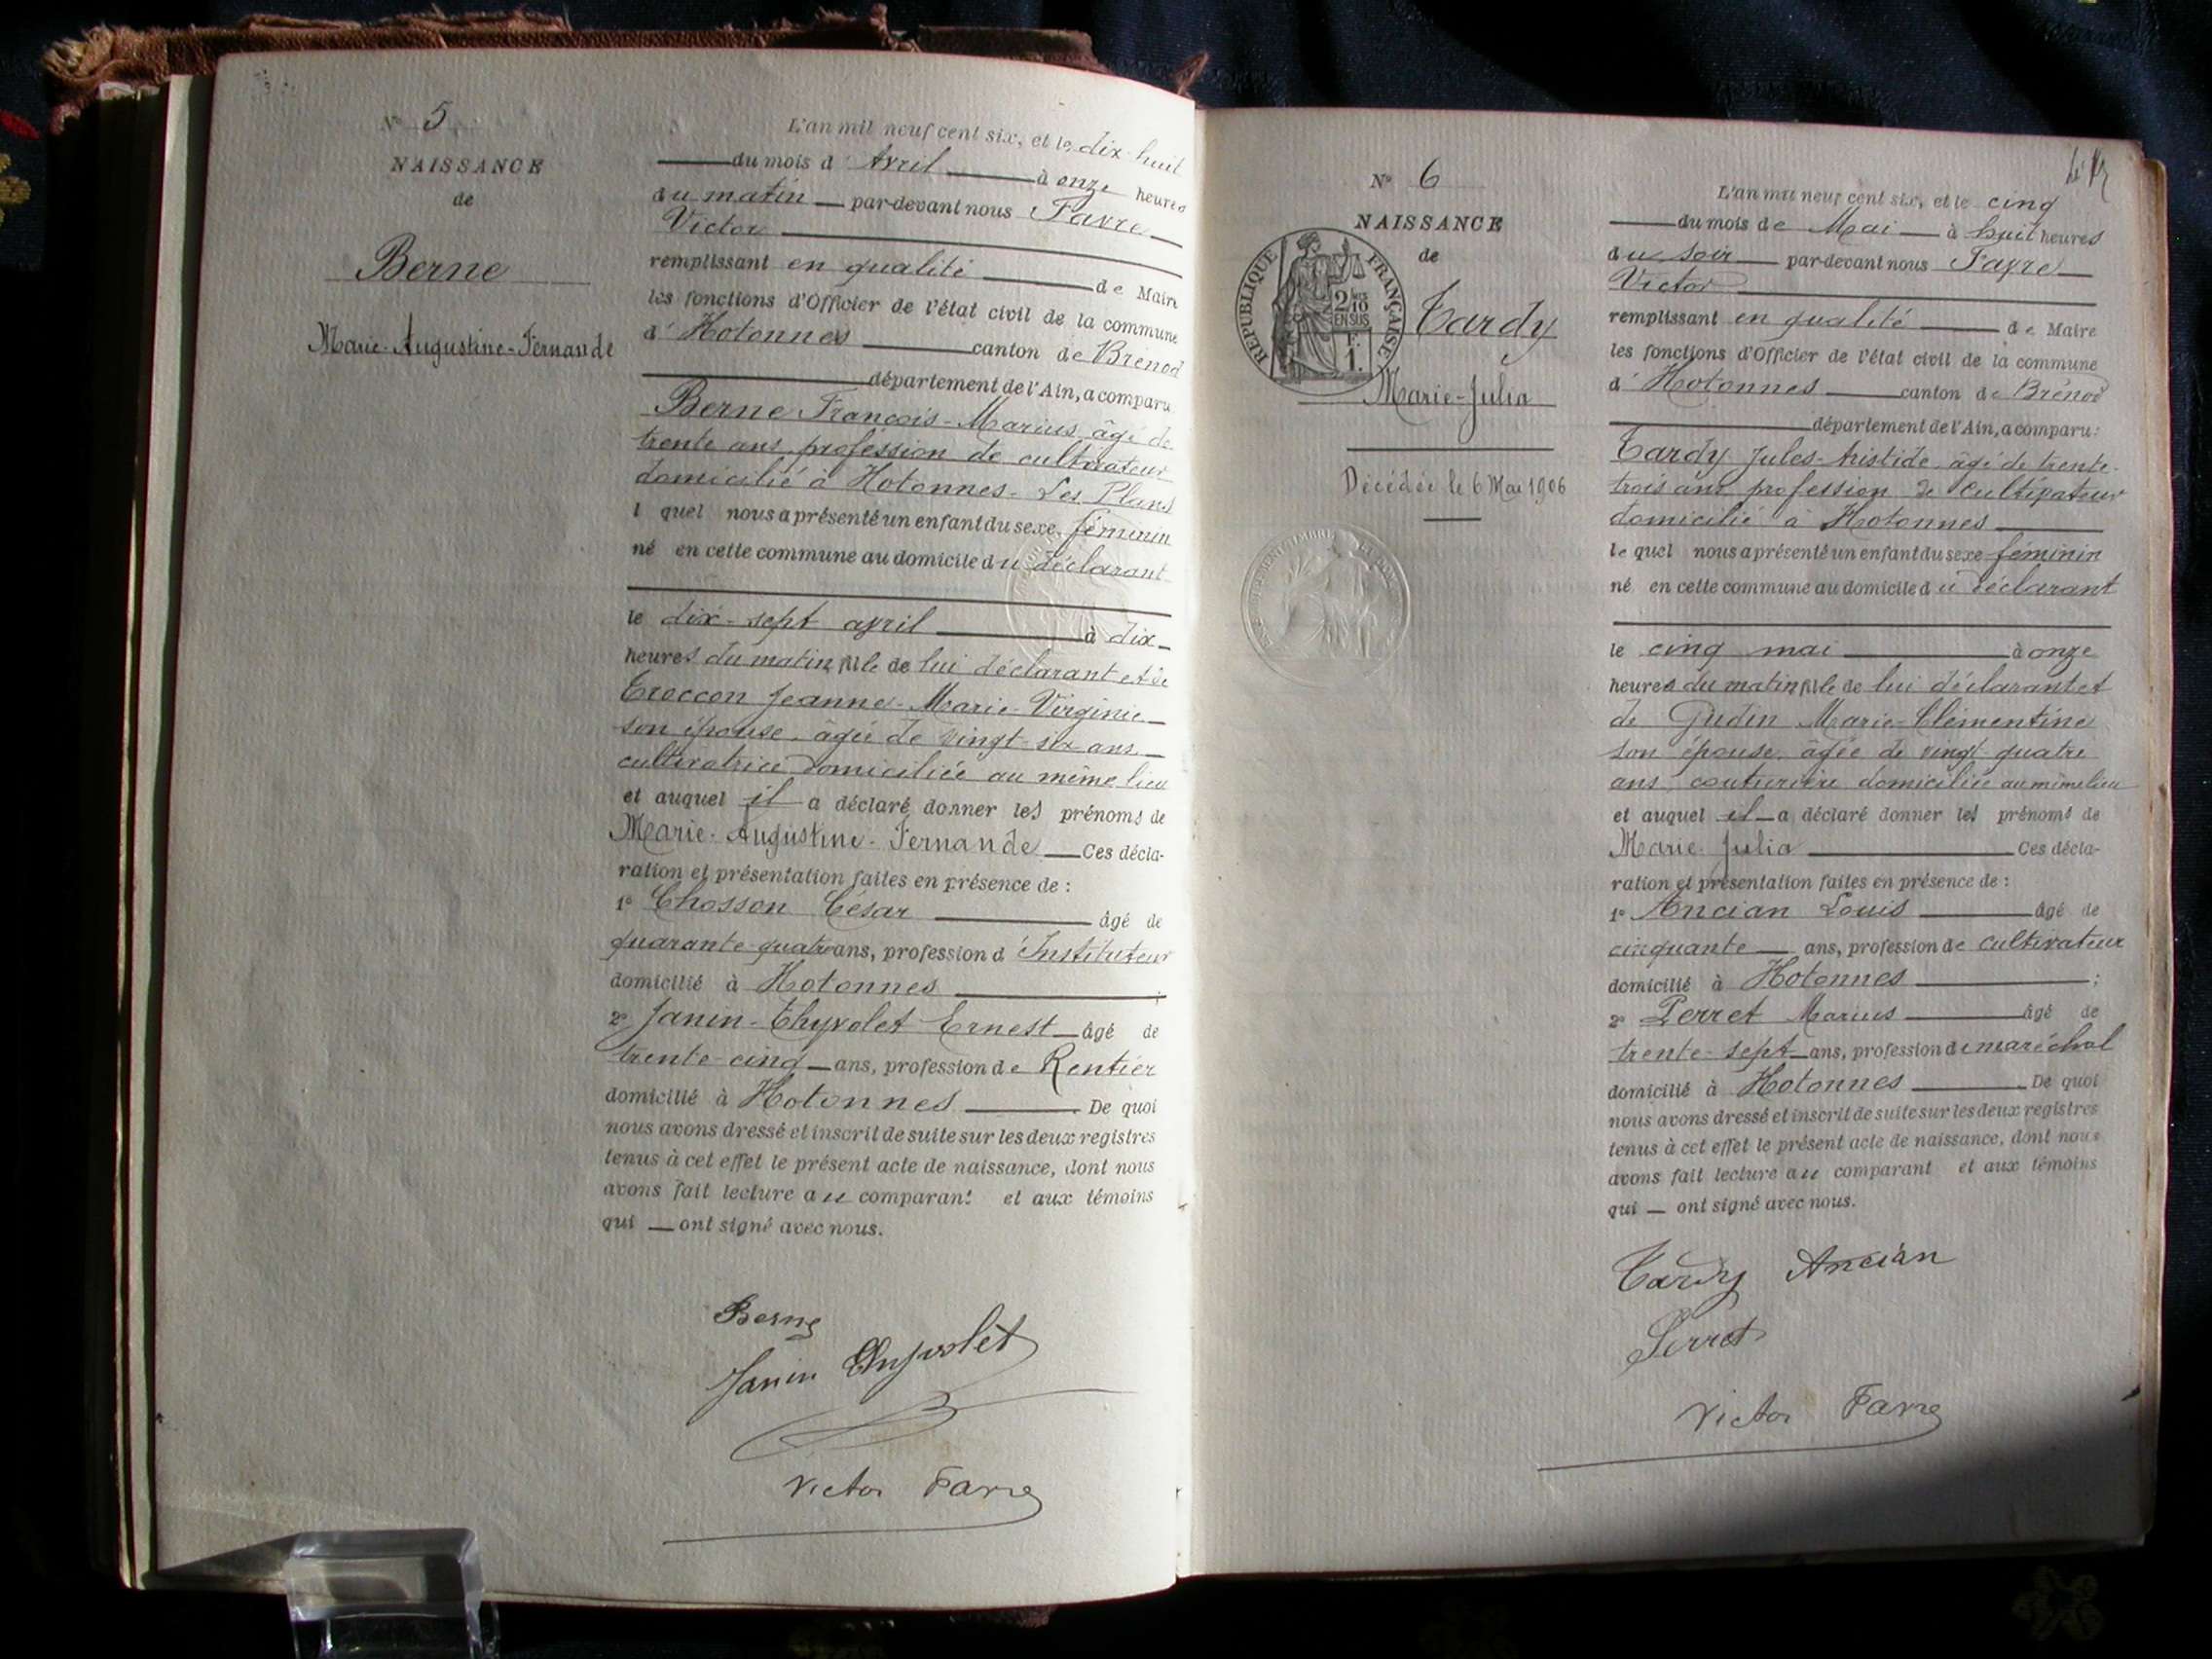 N° 5
NAISSANCE
de
Berne
Marie-Augustine-Fernande
L'an mil neuf cent six, et le dix-huit
du mois d'Avril à onze heures
du matin par-devant nous Favre
Victor
remplissant en qualité de Maire
les fonctions d'Officier de l'état civil de la commune
d'Hotonnes canton de Brenod
département de l'Ain, a comparu
Berne François-Marius âgé de
trente ans profession de cultivateur
domicilié à Hotonnes-Les Plans
l quel nous a présenté un enfant du sexe féminin
né en cette commune au domicile du déclarant
le dix-sept avril à dix
heures du matin fille de lui déclarant et de
Troccon Jeanne-Marie-Virginie
son épouse, âgée de vingt-six ans
cultivatrice domiciliée au même lieu
et auquel il a déclaré donner les prénoms de
Marie-Augustine-Fernande Ces décla-
ration et présentation faites en présence de :
1° Chosson César âgé de
quarante-quatre ans, profession d'Instituteur
domicilié à Hotonnes ;
2° Janin-Thyvolet Ernest âgé de
trente-cinq ans, profession de Rentier
domicilié à Hotonnes De quoi
nous avons dressé et inscrit de suite sur les deux registres
tenus à cet effet le présent acte de naissance, dont nous
avons fait lecture au comparant et aux témoins
qui ont signé avec nous.
Berne
Janin Thyvolet
Victor Favre
N° 6
NAISSANCE
de
RÉPUBLIQUE FRANÇAISE
2/10
EN SUS
F.
1.
Tardy
Marie-Julia
Décédée le 6 Mai 1906
L'an mil neuf cent six, et le cinq
du mois de Mai à huit heures
du soir par-devant nous Favre
Victor
remplissant en qualité de Maire
les fonctions d'Officier de l'état civil de la commune
d'Hotonnes canton de Brénod
département de l'Ain, a comparu :
Tardy Jules-Aristide âgé de trente-
trois ans profession de cultivateur
domicilié à Hotonnes
le quel nous a présenté un enfant du sexe féminin
né en cette commune au domicile du déclarant
le cinq mai à onze
heures du matin fille de lui déclarant et
de Gudin Marie-Clémentine
son épouse, âgée de vingt quatre
ans couturière domiciliée au même lieu
et auquel il a déclaré donner les prénoms de
Marie-Julia Ces décla-
ration et présentation faites en présence de :
1° Ancian Louis âgé de
cinquante ans, profession de cultivateur
domicilié à Hotonnes ;
2° Perret Marius âgé de
trente-sept ans, profession de maréchal
domicilié à Hotonnes De quoi
nous avons dressé et inscrit de suite sur les deux registres
tenus à cet effet le présent acte de naissance, dont nous
avons fait lecture au comparant et aux témoins
qui ont signé avec nous.
Tardy Ancian
Perret
Victor Favre